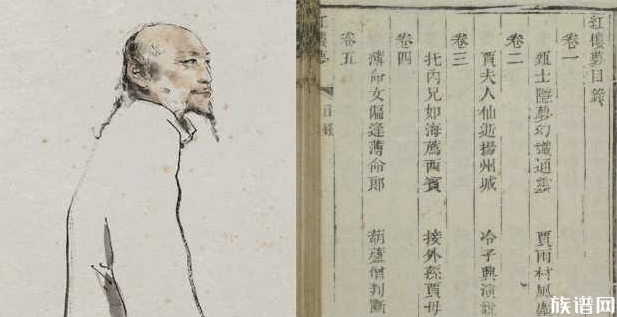 紅樓夢目錄
卷一
甄士隱夢幻識通靈 賈雨村風
卷二
賈夫人仙逝揚州城 冷子興演說
卷三
托內兄如海薦西賓 接外孫賈母
卷四
薄命女偏逢薄命郎 葫蘆僧判斷
卷五
紅樓夢 目錄
族谱网